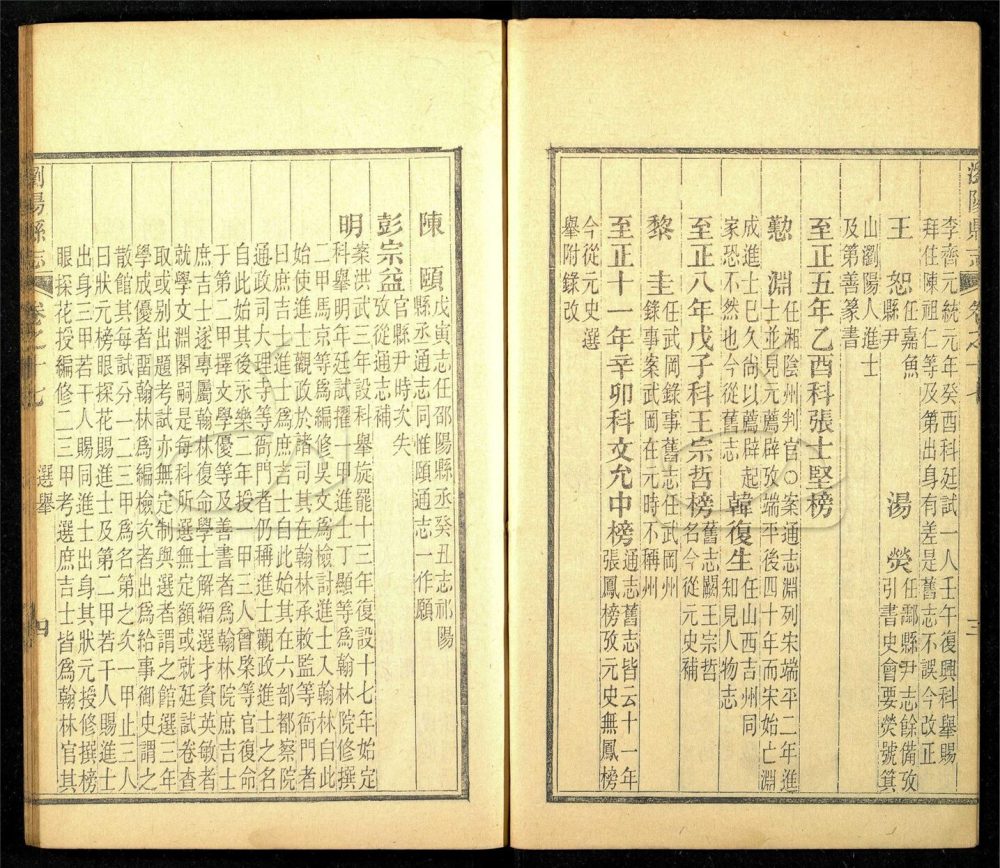 瀏陽縣志 卷之十七 三
李齊元統元年癸酉科廷試一人壬午復興科舉賜
拜住陳祖仁等及第出身有差是舊志不誤今改正
王 恕 任嘉魚縣尹 湯 熒 任酃縣尹志餘備攷引書史會要熒號箕
山瀏陽人進士
及第善篆書
至正五年乙酉科張士堅榜
懃 淵 任湘陰州判官○案通志淵列宋端平二年進
士並見元薦辟攷端平後四十年而宋始亡淵
成進士已久尚以薦辟起
家恐不然也今從舊志 韓復生 任山西吉州同知見人物志
至正八年戊子科王宗哲榜 舊志闕王宗哲名今從元史補
黎 圭 任武岡錄事舊志任武岡州
錄事案武岡在元時不稱州
至正十一年辛卯科文允中榜 通志舊志皆云十一年
張鳳榜攷元史無鳳榜
今從元史選
舉附錄改
陳 頤 戊寅志任邵陽縣丞癸丑志祁陽
縣丞通志同惟頤通志一作願
彭宗益 官縣尹時次失
攷從通志補
明 案洪武三年設科舉旋罷十三年復設十七年始定
科舉明年廷試擢一甲進士丁顯等爲翰林院修撰
二甲馬京等爲編修吳文爲檢討進士入翰林自此
始使進士觀政於諸司其在翰林承敕監等衙門者
曰庶吉士進士之爲庶吉士自此始其在六部都察院
通政司大理寺等衙門者仍稱進士觀政進士之名
自此始其後永樂二年授一甲三人曾棨等官復命
于第二甲擇文學優等及善書者爲翰林院庶吉士
庶吉士遂專屬翰林復命學士解縉選才資英敏者
就學文淵閣嗣是每科所選無定額或就廷試卷查
取或別出題考試亦無定制與選者謂之館選三年
學成優者畱翰林爲編檢次者出爲給事御史謂之
散館其每試分一二三甲爲名第之次一甲止三人
曰狀元榜眼探花賜進士及第二甲若干人賜進士
出身三甲若干人賜同進士出身其狀元授修撰榜
眼探花授編修二三甲考選庶吉士皆爲翰林官其
瀏陽縣志 卷之十七 選舉 四